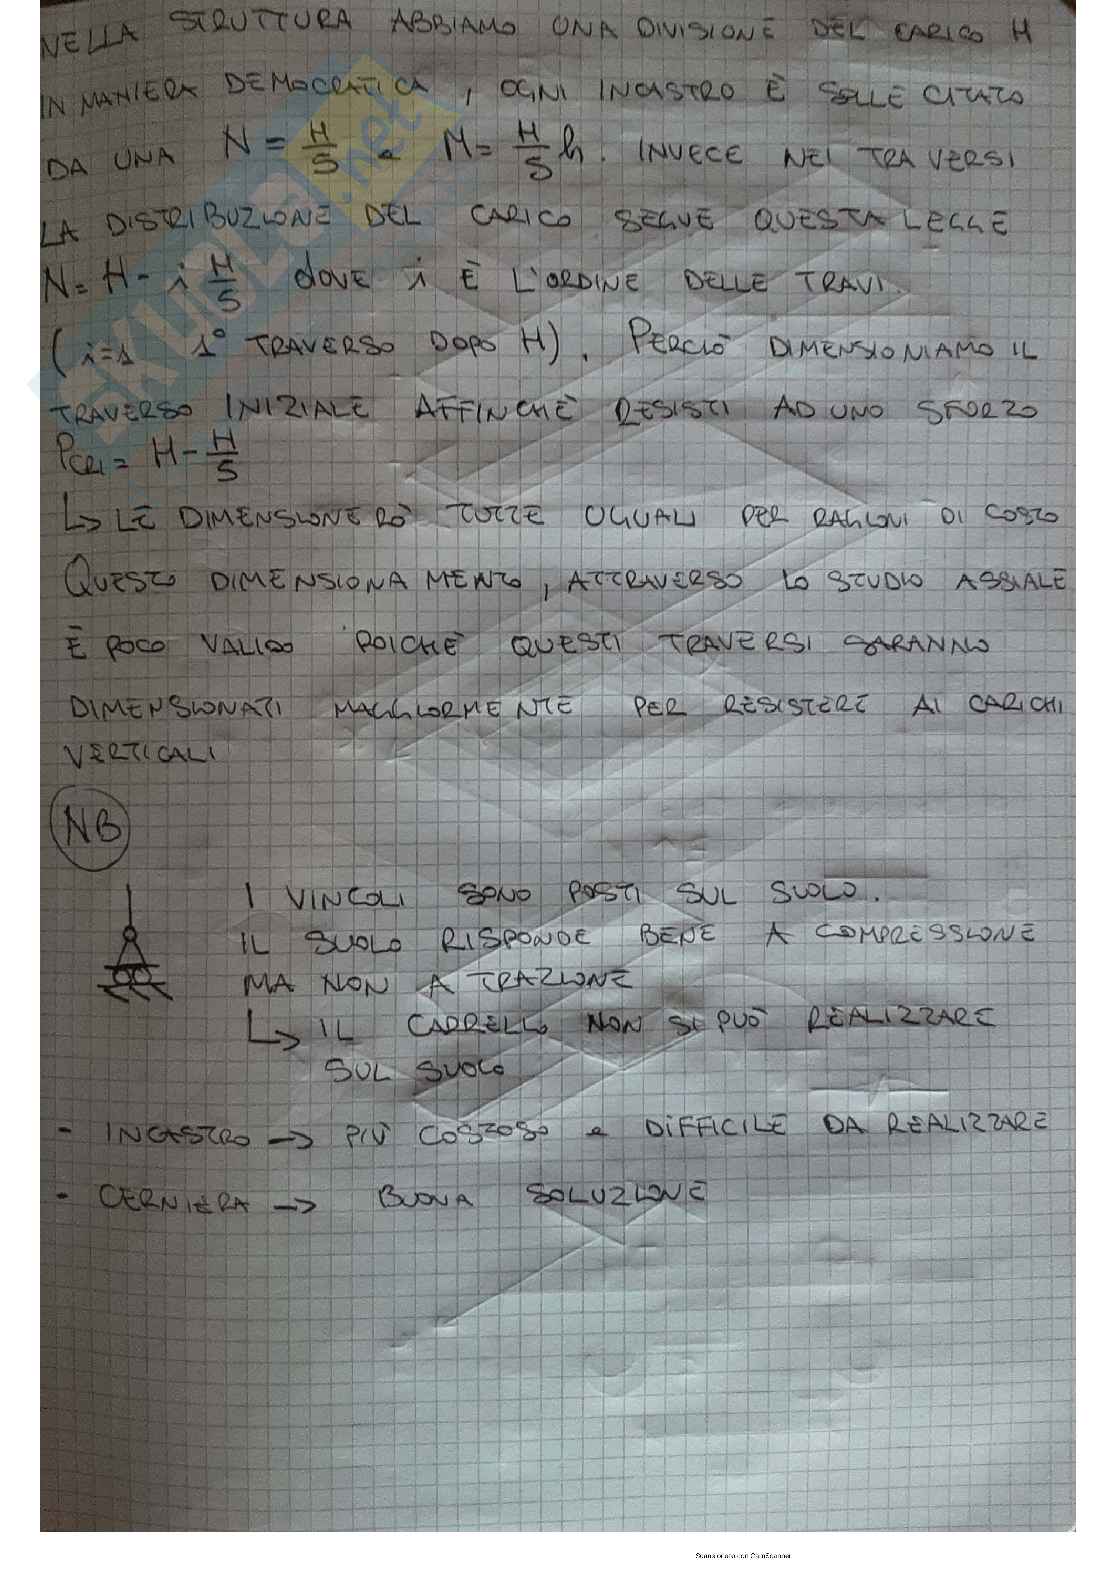 NELLA STRUTTURA ABBIAMO UNA DIVISIONE DEL CARICO H
IN MANIERA DEMOCRATICA, OGNI INCASTRO È SOLLECITATO
DA UNA N = H/5 e M = H/5 h. INVECE NEI TRAVERSI
LA DISTRIBUZIONE DEL CARICO SEGUE QUESTA LEGGE
N = H - i H/5 dove i È L'ORDINE DELLE TRAVI.
(i=1 1° TRAVERSO DOPO H). PERCIÒ DIMENSIONIAMO IL
TRAVERSO INIZIALE AFFINCHÈ RESISTI AD UNO SFORZO
Pcri = H - H/5
↳ LE DIMENSIONERÒ TUTTE UGUALI PER RAGIONI DI COSTO
QUESTO DIMENSIONAMENTO, ATTRAVERSO LO STUDIO ASSIALE
È POCO VALIDO POICHÈ QUESTI TRAVERSI SARANNO
DIMENSIONATI MAGGIORMENTE PER RESISTERE AI CARICHI
VERTICALI
NB
I VINCOLI SONO POSTI SUL SUOLO.
IL SUOLO RISPONDE BENE A COMPRESSIONE
MA NON A TRAZIONE
↳ IL CARRELLO NON SI PUÒ REALIZZARE
SUL SUOLO
- INCASTRO → PIÙ COSTOSO e DIFFICILE DA REALIZZARE
- CERNIERA → BUONA SOLUZIONE
SKUOLA.net
Scansionato con CamScanner